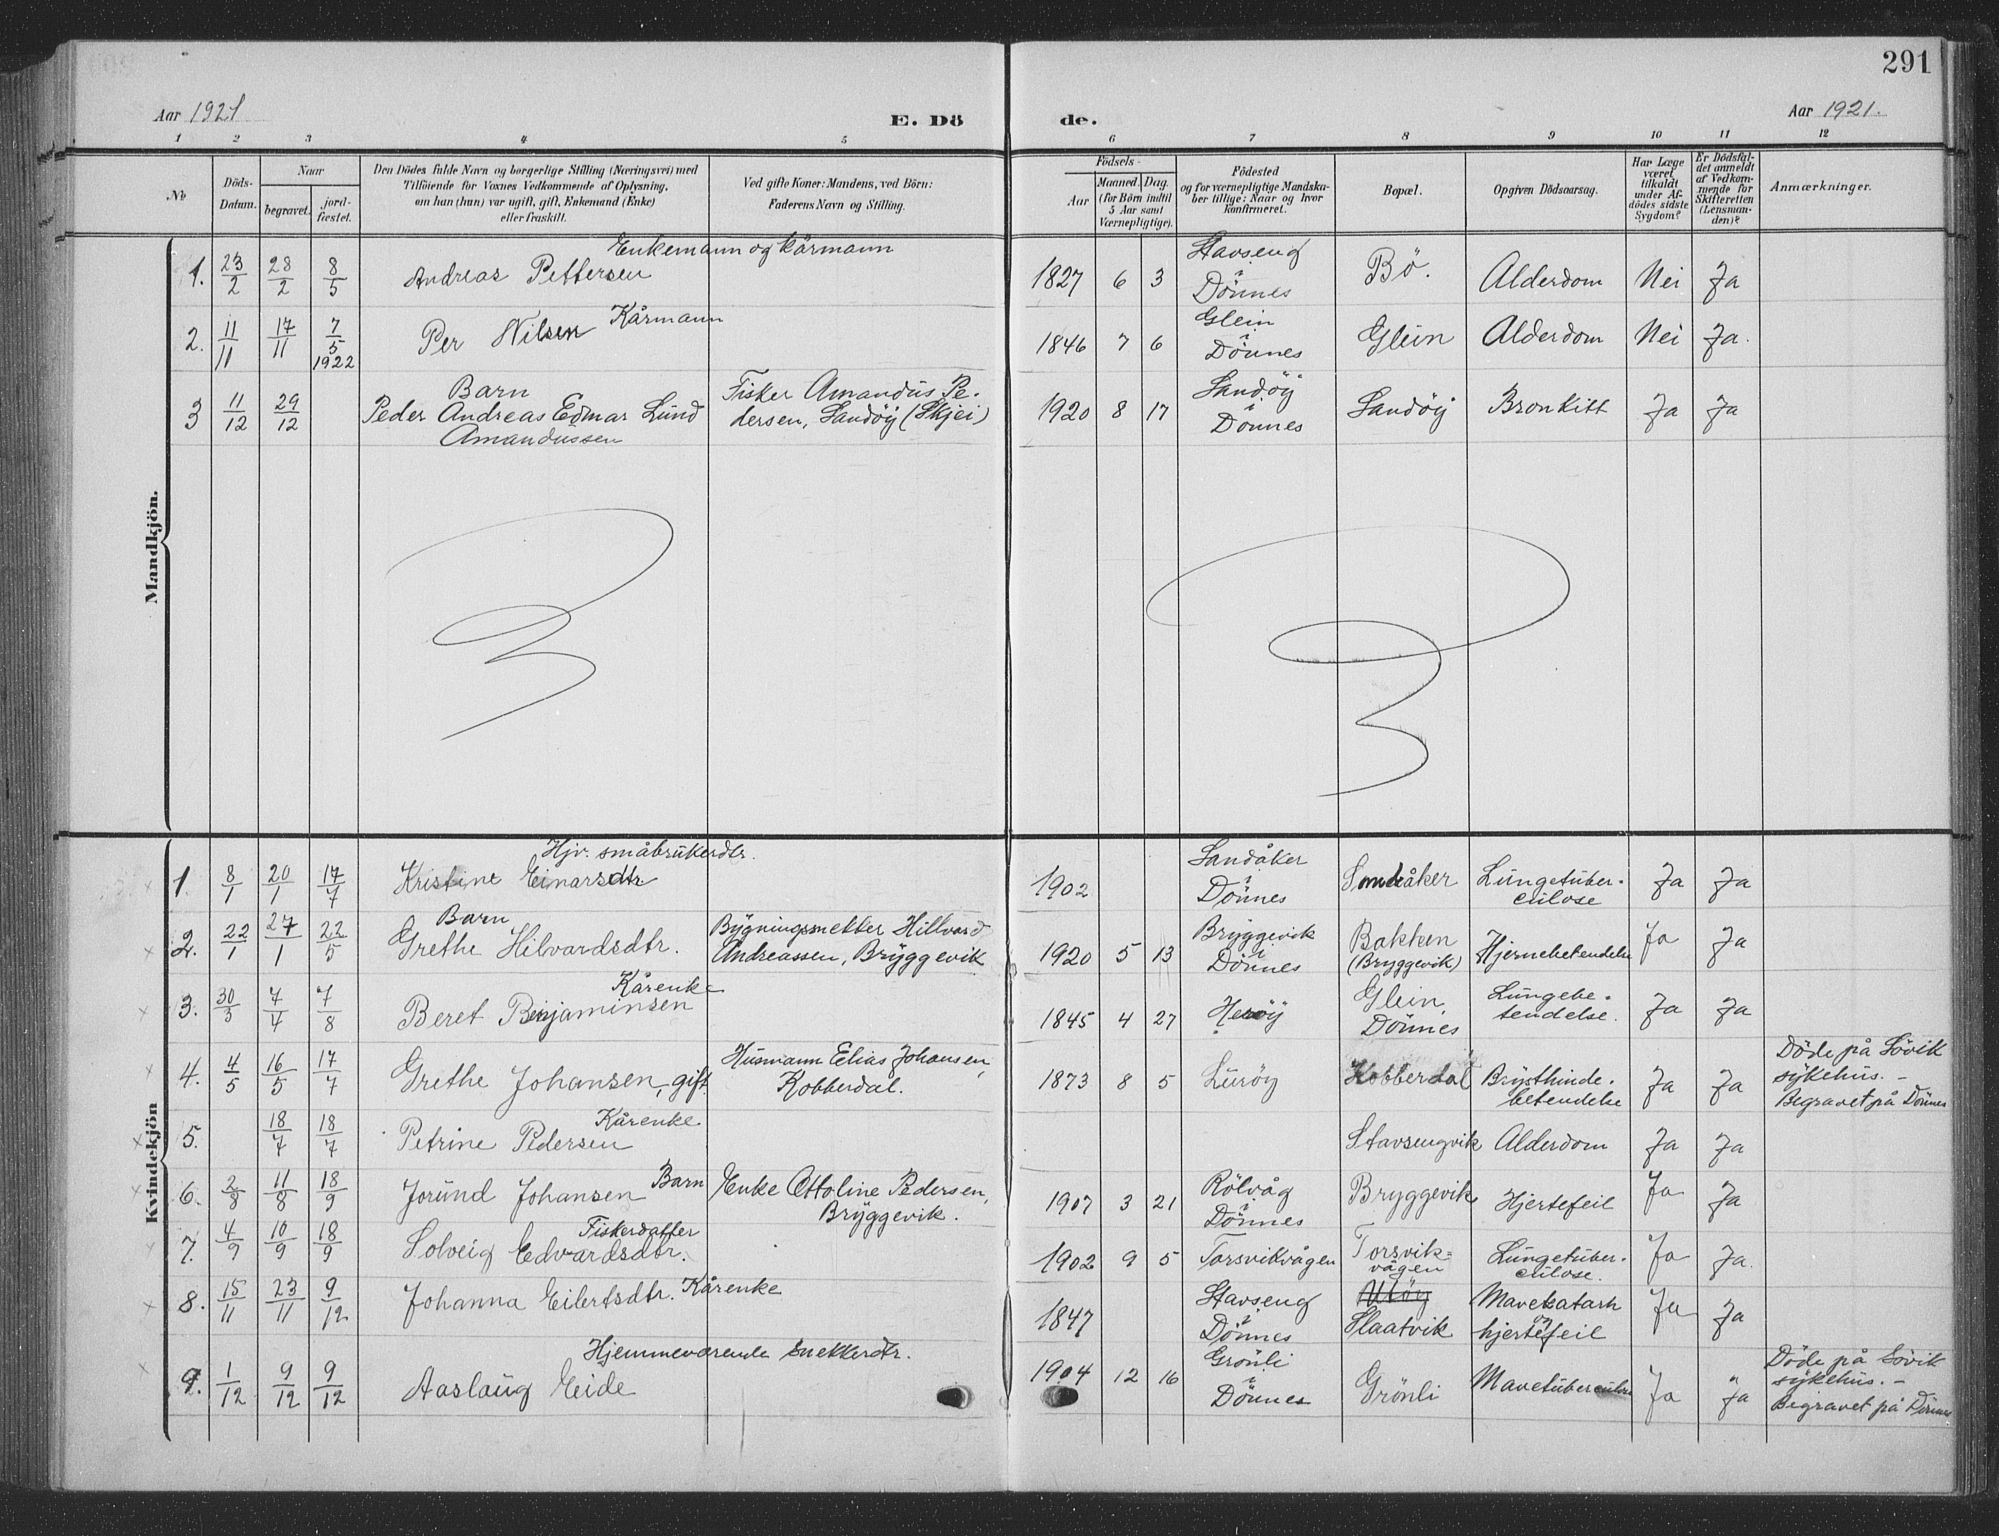 291
Aar 1921
E. Dö
de.
Aar 1921.
1 2 3 4 5 6 7 8 9 10 11 12
No
Döds-Datum.
Naar
begravet.
jordfæstet.
Den Dödes fulde Navn og borgerlige Stilling (Næringsvei) med
Tilföiende for Voxnes Vedkommende af Oplysning,
om han (hun) var ugift, gift, Enkemand (Enke)
eller fraskilt.
Ved gifte Koner: Mandens, ved Börn:
Faderens Navn og Stilling.
Födsels-
Aar
Maaned. Dag.
(for Börn indtil
5 Aar samt
Værnepligtige).
Födested
og for værnepligtige Mandska-
ber tillige: Naar og hvor
konfirmeret.
Bopæl.
Opgiven Dödsaarsag.
Har Læge
været
tilkaldt
under Af-
dödes sidste
Sygdom?
Er Dödsfal-
det anmeldt
af Vedkom-
mende for
Skifteretten
(Lensman-
den)?
Anmærkninger.
Mandkjön.
Enkemann og kårmann
1. 23/2 28/2 8/5 Andreas Pettersen 1827 6 3 Stavseng i Dönnes Bö. Alderdom Nei Ja
Kårmann
2. 11/11 17/11 7/5 1922 Per Nilsen 1846 7 6 Glein i Dönnes Glein Alderdom Nei Ja.
Barn
3 11/12 29/12 Peder Andreas Edmar Lund Amandussen Fisker Amandus Pedersen, Sandöy (Skjei) 1920 8 17 Sandöy i Dönnes Sandöy Bronkitt Ja Ja
Kvindekjön
Hjv. småbrukerdtr.
1. 8/1 20/1 17/7 Kristine Einarsdtr 1902 Sandåker i Dönnes Sandåker Lungetuberculose Ja Ja
Barn
2. 22/1 27/1 22/5 Grethe Hilvardsdtr. Bygningssnekker Hillvard Andreassen, Bryggevik 1920 5 13 Bryggevik i Dönnes Bakken (Bryggevik) Hjernebetendelse Ja Ja
Kårenke
3. 30/3 7/4 7/8 Beret Benjaminsen 1845 4 27 Heröy Glein, Dönnes Lungebetendelse. Ja Ja
4. 4/5 16/5 17/7 Grethe Johansen, gift Husmann Elias Johansen, Kobberdal. 1873 8 5 Luröy Kobberdal Brysthindebetendelse Ja Ja Döde på Sövik sykehus. - Begravet på Dönnes
Kårenke
5. 18/7 18/7 Petrine Pedersen Stavsengvik Alderdom Ja Ja
6. 2/8 11/8 18/9 Jorund Johansen Barn Enke Ottoline Pedersen, Bryggevik. 1907 3 21 Rölvåg i Dönnes Bryggevik Hjertefeil Ja Ja
Fiskerdatter
7. 4/9 10/9 18/9 Solveig Edvardsdtr. 1902 9 5 Torsvikvågen Torsvikvågen Lungetuberculose. Ja Ja.
8. 15/11 23/11 9/12 Johanna Eilertsdtr. Kårenke 1847 Stavseng i Dönnes Slaatvik Mavekatarh og hjertefeil Ja Ja
Hjemmeværende snekkerdtr.
9. 1/12 9/12 9/12 Aaslaug Eide 1904 12 16 Grönli i Dönnes Grönli Mavetuberculose Ja Ja Döde på Sövik sykehus. - Begravet på Dönnes